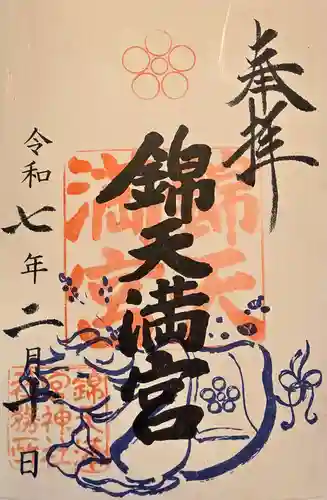 奉拝
錦天満宮
令和七年二月十日
錦天満宮
錦天満宮神社社務所